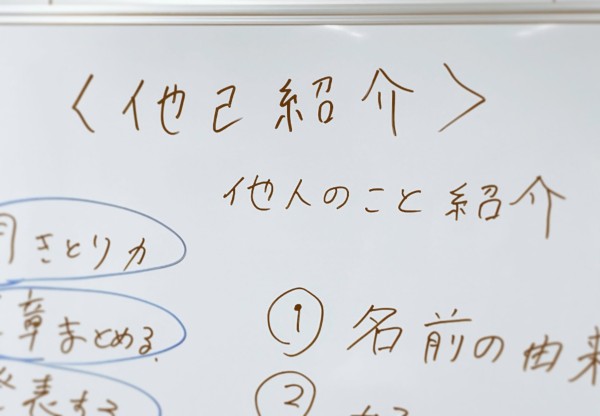 〈他己紹介〉
他人のこと紹介
きとり力
章まとめる
表する
① 名前の由来
②